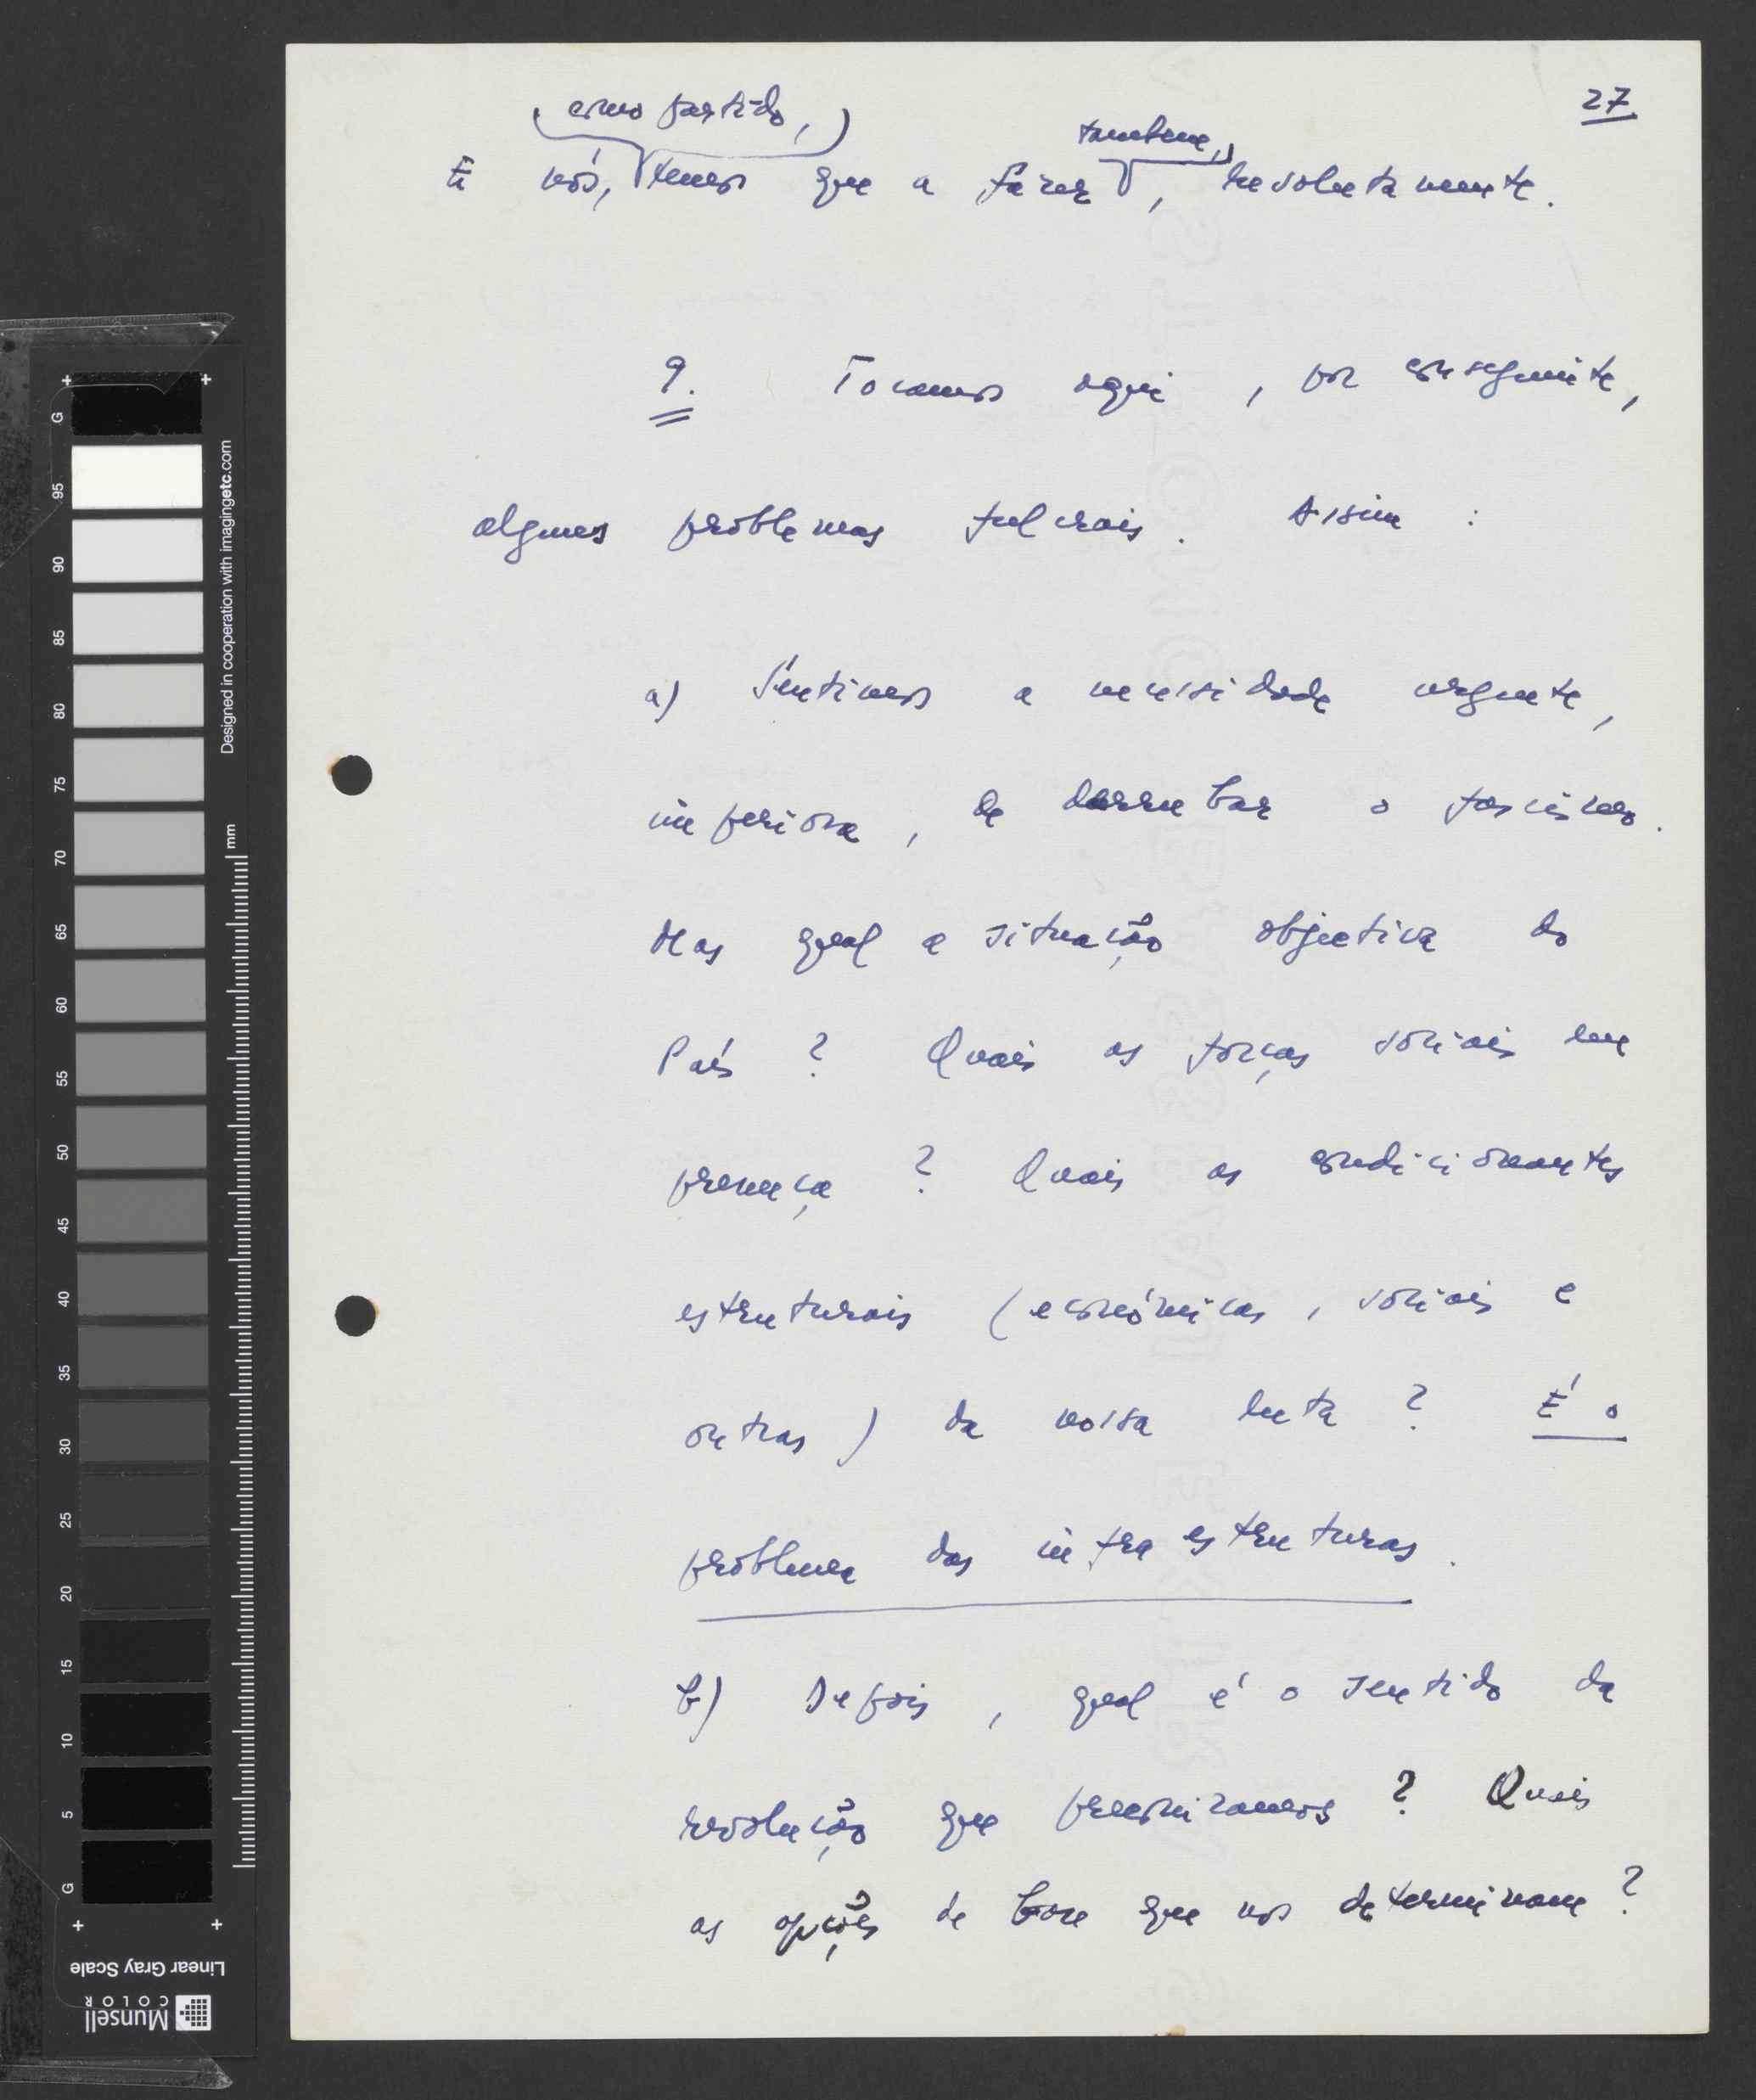 27.
como partido,
também,
E nós, temos que a fazer, resolutamente.
9. Tocamos aqui, por conseguinte,
alguns problemas fulcrais. Assim:
a) Sentimos a necessidade urgente,
imperiosa, de derrubar o fascismo.
Mas qual a situação objectiva do
País? Quais as forças sociais em
presença? Quais as condicionantes
estruturais (económicas, sociais e
outras) da nossa luta? É o
problema das infraestruturas.
b) Depois, qual é o sentido da
revolução que preconizamos? Quais
as opções de base que nos determinam?
G 95 90 85 80 75 70 65 60 55 50 45 40 35 30 25 20 15 10 5 G
Designed in cooperation with imagingetc.com
mm
Linear Gray Scale
Munsell
COLOR